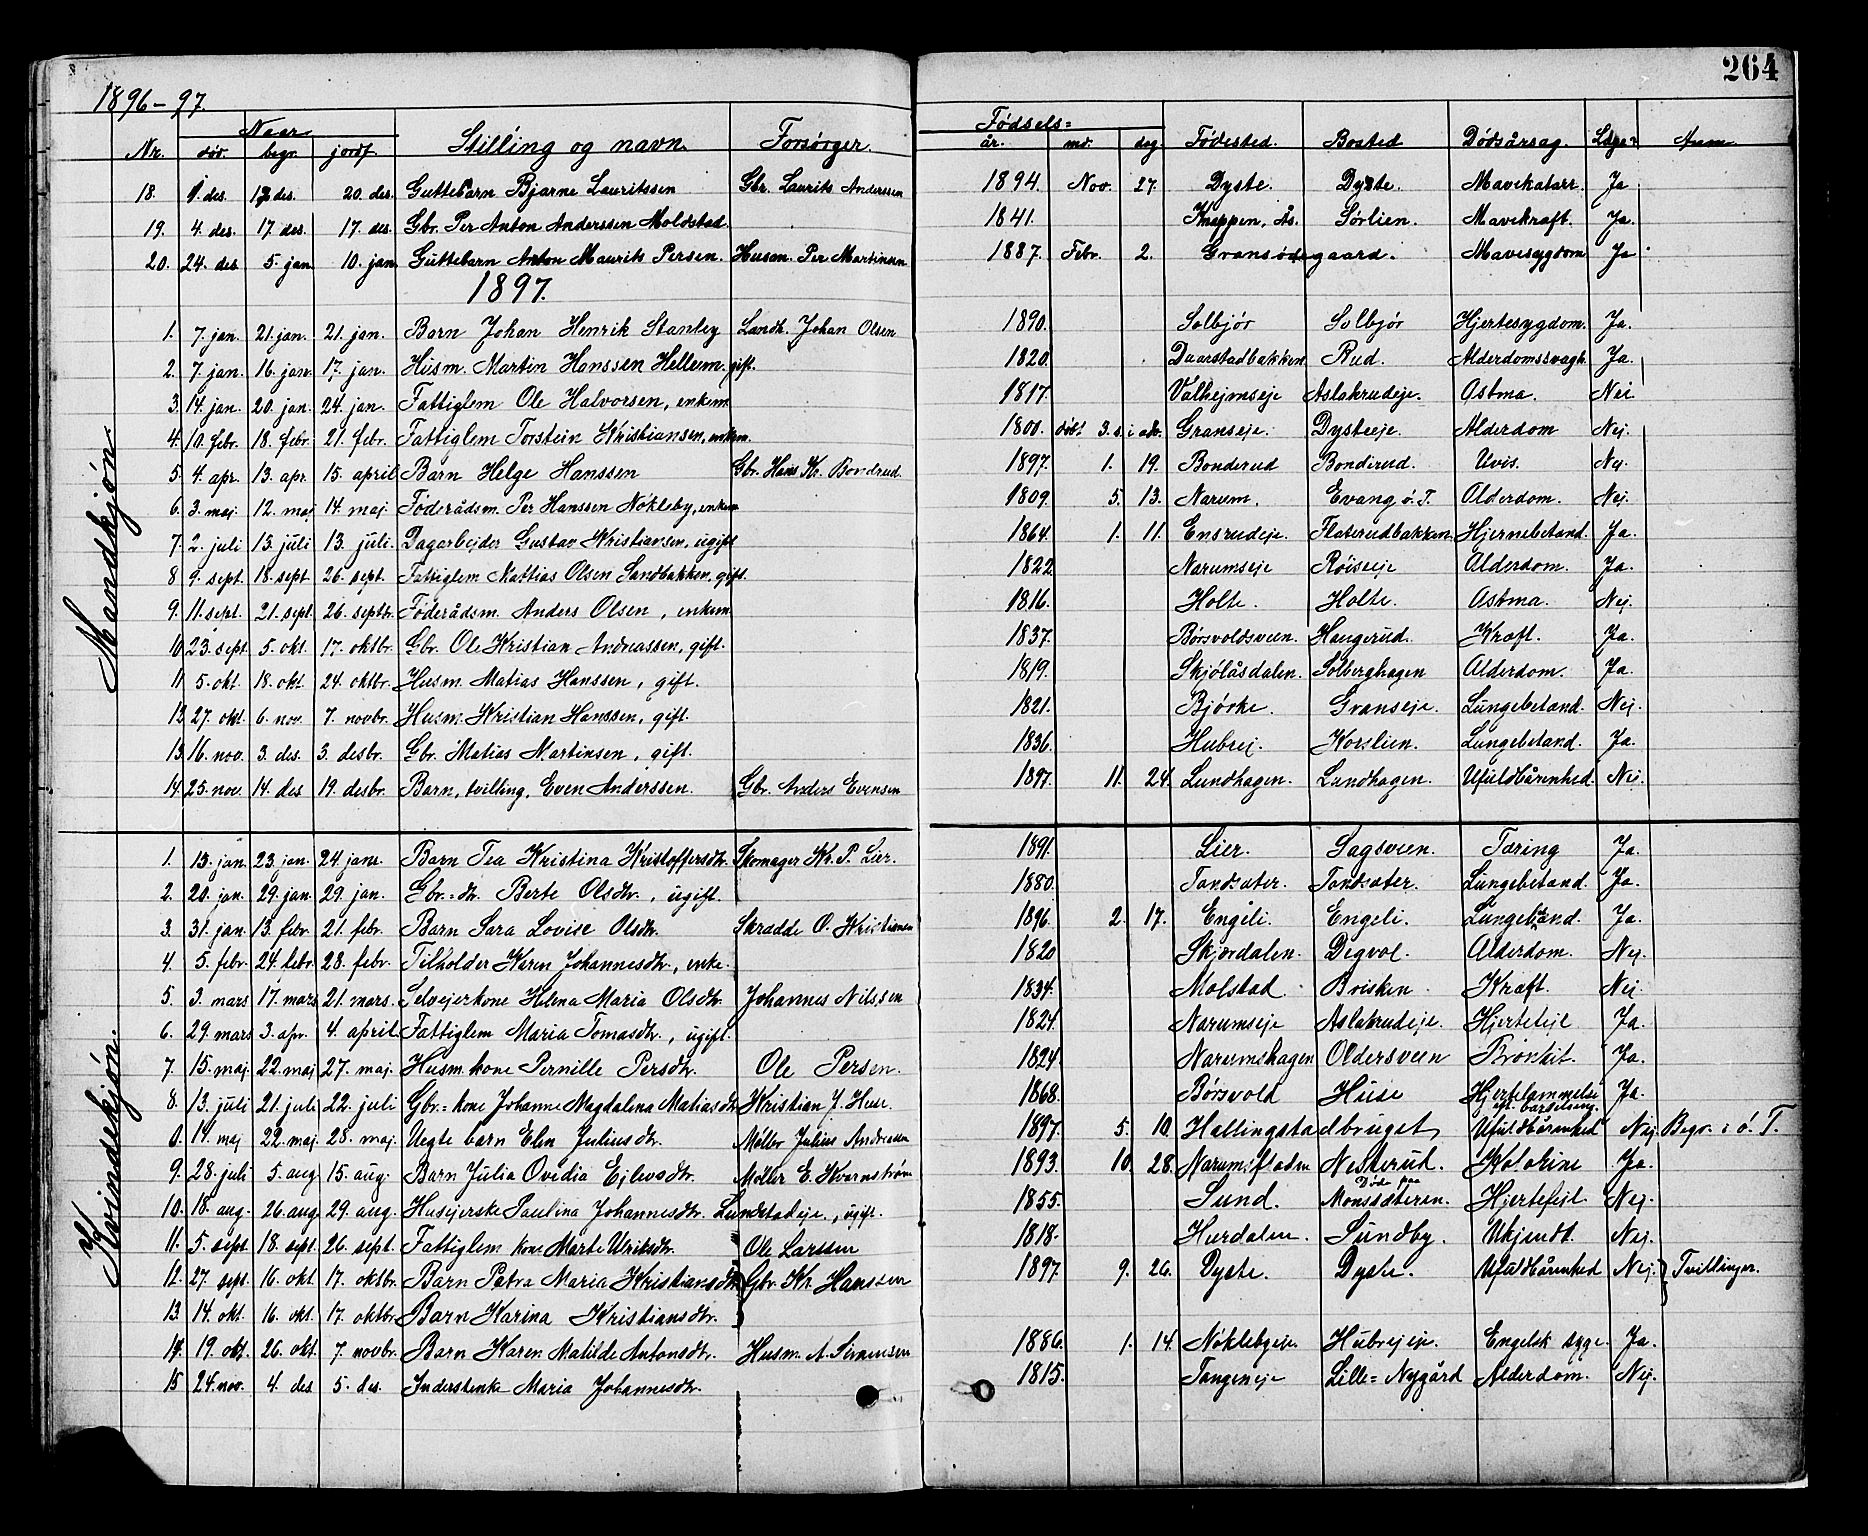 264
1896-97
Nr. Naar død. begr. jordf. Stilling og navn. Forsørger. Fødsels= år. md. dag. Fødested. Bosted Dødsårsag. Læge= Anm.
Mandkjøn.
18. 1. des. des. 20. des. Guttebarn Bjarne Lauritssen Gbr. Laurits Anderssen 1894. Nov. 27. Dyste. Dyste. Mavekatarr. Ja
19. 4. des. 17. des. 17. des. Gbr. Per Anton Anderssen Moldstad. 1841. Kneppen, Ås. Sørlien. Mavekraft. Ja.
20. 24. des. 5. jan. 10. jan. Guttebarn Anton Maurits Persen. Husm. Per Martinsen 1887. Febr. 2. Gransødegaard. Mavesygdom Ja
1897.
1. 7. jan. 21. jan. 21. jan. Barn Johan Henrik Stanley Landh. Johan Olsen 1890. Solbjør Solbjør Hjertesygdom. Ja.
2. 7. jan. 16. jan. 17. jan. Husm. Martin Hanssen Hellum. gift. 1820. Daarstadbakken Rud. Alderdomssvagh. Ja.
3. 14. jan. 20. jan. 24. jan. Fattiglem Ole Halvorsen, enkem. 1817. Valhejmseje Aslakrudeje. Astma. Nei
4. 10. febr. 18. febr. 21. febr. Fattiglem Torstein Kristiansen, enkem. 1800. døbt 3. s. i adv. Granseje. Dysteeje. Alderdom Nej.
5. 4. apr. 13. apr. 15. april Barn Helge Hanssen Gbr. Hans Kr. Bondrud. 1897. 1. 19. Bonderud Bonderud. Uvis. Nej.
6. 3. maj 12. maj 14. maj Føderådsm. Per Hanssen Nøkleby, enkem 1809. 5. 13. Narum. Evang ø. T. Alderdom. Nej.
7. 2. juli 13. juli 13. juli. Dagarbejder Gustav Kristiansen, ugift 1864. 1. 11. Ensrudeje. Flaterudbakken. Hjernebetænd. Ja.
8 9. sept. 18. sept 26. sept. Fattiglem Mattias Olsen Sandbakken, gift. 1822 Narumseje Røiseeje Alderdom. Ja.
9. 11. sept. 21. sept. 26. septbr. Føderådsm. Anders Olsen, enkem. 1816. Holte. Holte. Astma. Nej.
10 23. sept. 5. okt. 17. oktbr. Gbr. Ole Kristian Andreassen, gift. 1837. Børsvoldsveen. Haugerud. Kræft. Ja.
11 5. okt. 18. okt. 24. oktbr. Husm. Matias Hanssen, gift. 1819. Skjølåsdalen. Solberghagen Alderdom. Ja.
13 27. okt. 6. nov. 7. novbr. Husm. Kristian Hanssen, gift. 1821. Bjørke. Granseje. Lungebetænd. Nej.
13 16. nov. 3. des. 3. desbr. Gbr. Matias Martinsen, gift. 1836. Hubrej. Korslien. Lungebetænd. Ja.
14 25. nov. 14. des. 19. desbr. Barn, tvilling, Even Anderssen. Gbr. Anders Evensen 1897. 11. 24. Lundhagen. Lundhagen. Ufuldbårenhed Nei.
Kvindekjøn.
1. 13. jan. 23. jan. 24. jan. Barn Tea Kristina Kristoffersdtr. Skomager Kr. P. Lier. 1891. Lier. Sagsveen. Tæring Ja.
2. 20. jan. 29. jan. 29. jan. Gbr.=dtr. Berte Olsdtr., ugift. 1880. Tandsæter. Tandsæter. Lungebetænd. Ja.
3. 31. jan. 13. febr. 21. febr. Barn Sara Lovise Olsdtr. Skrædde O. Kristiansen 1896. 2. 17. Engeli. Engeli. Lungebetænd. Ja.
4. 5. febr. 24. febr. 28. febr. Tilholder Karen Johannesdtr., enke. 1820 Skjordalen. Degvol. Alderdom. Nej.
5. 3. mars 17. mars 21. mars. Selvejerkone Helena Maria Olsdtr. Johannes Nilssen 1834. Molstad. Brisken. Kræft. Nei.
6. 29. mars 3. apr. 4. april Fattiglem Maria Tomasdtr., ugift. 1824. Narumseje Aslakrudeje. Hjertefeil Ja.
7. 15. maj 22. maj 27. maj. Husm. kone Pernille Persdtr. Ole Persen. 1824. Narumshagen Oldersveen Bronkit. Ja.
8. 13. juli 21. juli 22. juli Gbr.= kone Johanne Magdalena Matiasdtr. Kristian J. Huse. 1868. Børsvold Huse Hjertelammelse eft. barselseng. Ja.
0 14. maj 22. maj. 28. maj. Uegte barn Elen Juliusdtr. Møller Julius Andreassen 1897. 5. 10. Hallingstadbruget Ufuldbårenhed Nej. Begr. i ø. T.
9. 28. juli 5. aug 15. aug. Barn Julia Ovidia Ejlevsdtr. Møller E. Kvernstrøm 1893. 10. 28. Narumsfladen Nesterud. Kolorine Ja.
10. 18. aug. 26. aug 29. aug. Husejerske Paulina Johannesdtr. Lundstadeje., ugift. 1855. Lund. Døde paa Monssæteren. Hjertefeil Nej.
11. 5. sept. 18. sept 26. sept. Fattiglem kone Marte Ulriksdtr. Ole Larssen 1818. Hurdalen. Sundby. Ukjendt. Nej.
12. 27. sept. 16. okt. 17. oktbr. Barn Petra Maria Kristiansdtr. Gbr. Kr. Hanssen 1897. 9. 26. Dyste. Dyste. Ufuldbårenhed Nej. Tvillinger.
13. 14. okt. 16. okt. 17. oktbr Barn Karina Kristiansdtr.
14. 19. okt. 26. okt. 7. novbr. Barn Karen Matilde Antonsdtr. Husm. A. Simensen 1886. 1. 14. Nøklebyeje. Hubrejeje. Engelsk syge. Ja.
15 24. nov. 4. des. 5. des. Inderstenke Maria Johannesdtr. 1815. Tangeneje Lille= Nygård Alderdom. Nej.